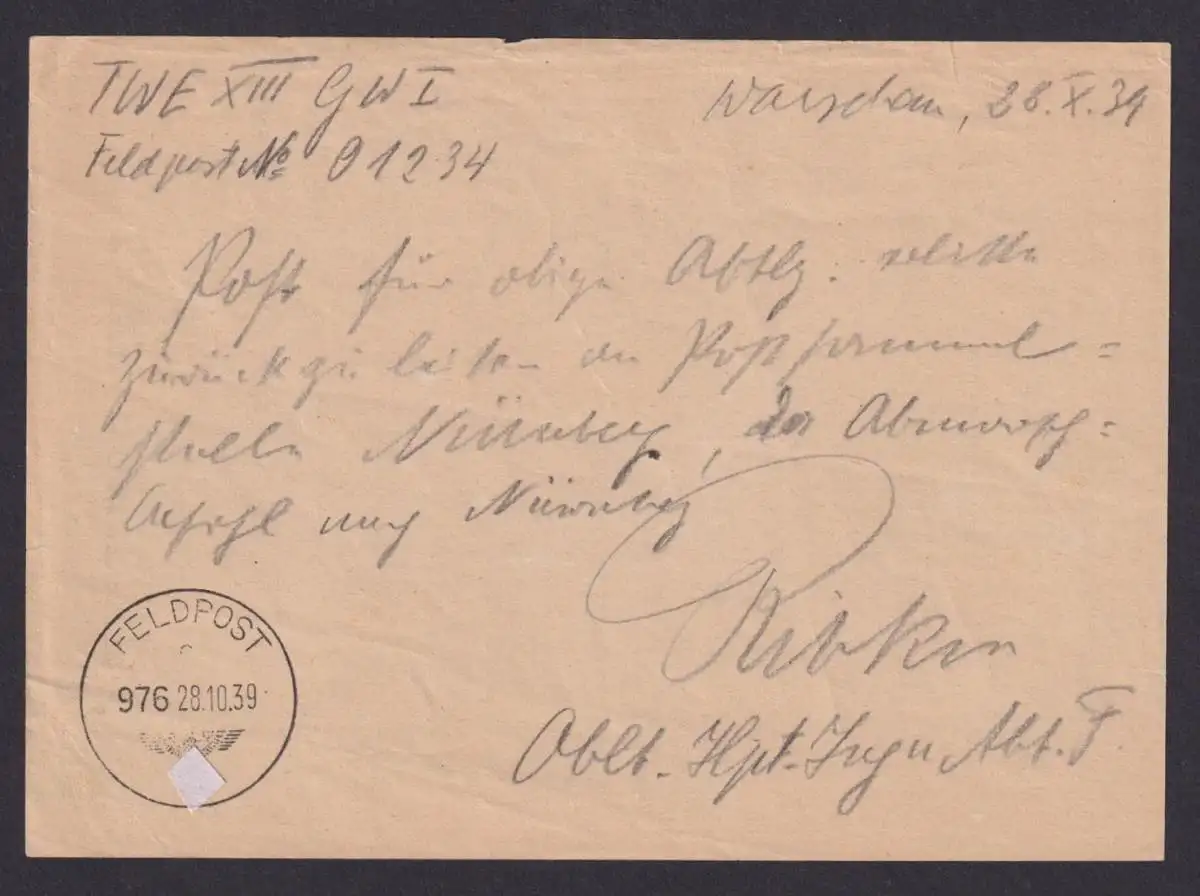 TWE XIII GW I
Warschau, 28.X.39
Feldpost No 01234
Post für obige Abtlg. bitte
zurückzuleiten an Postsammel=
stelle Nürnberg, da Abmarsch=
befehl nach Nürnberg
Oblt. Hpt. Ingn Abt. F.
FELDPOST
976 28.10.39